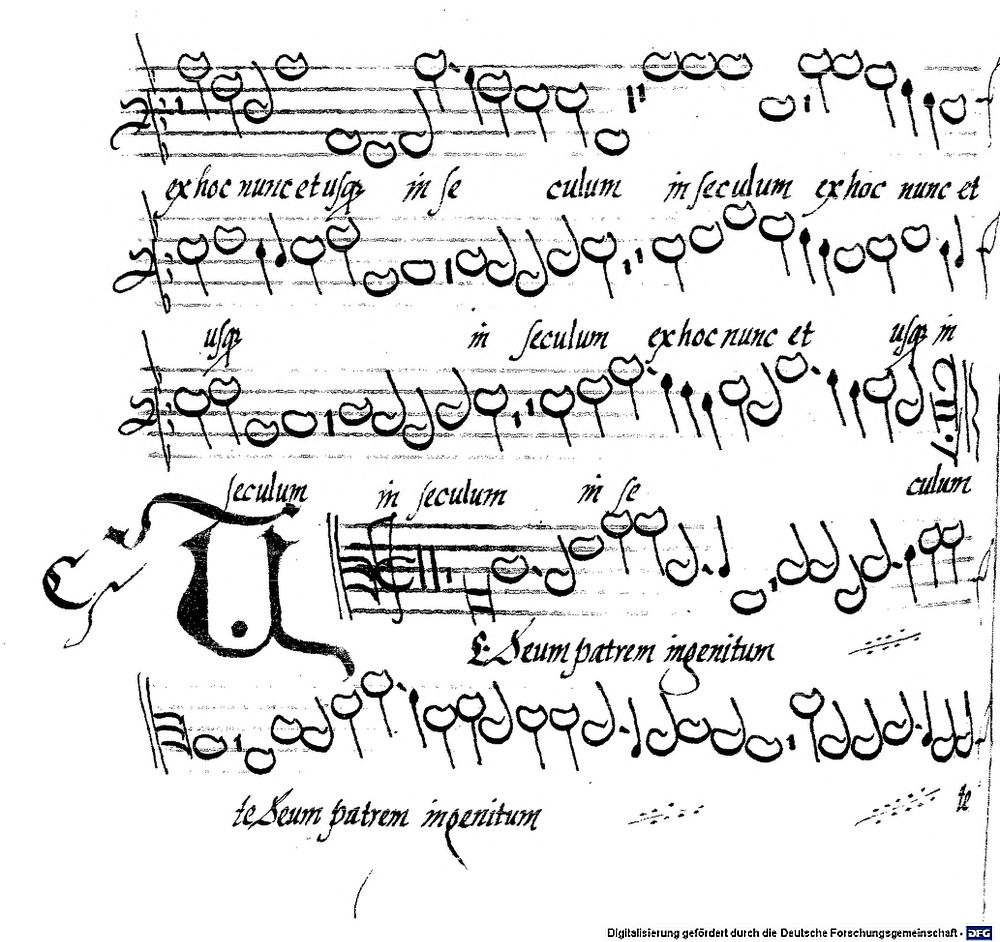 ex hoc nunc et usq; in se culum in seculum ex hoc nunc et
usq; in seculum ex hoc nunc et usq; in
seculum in seculum in se culum
TE Deum patrem ingenitum
te Deum patrem ingenitum te
Digitalisierung gefördert durch die Deutsche Forschungsgemeinschaft - DFG